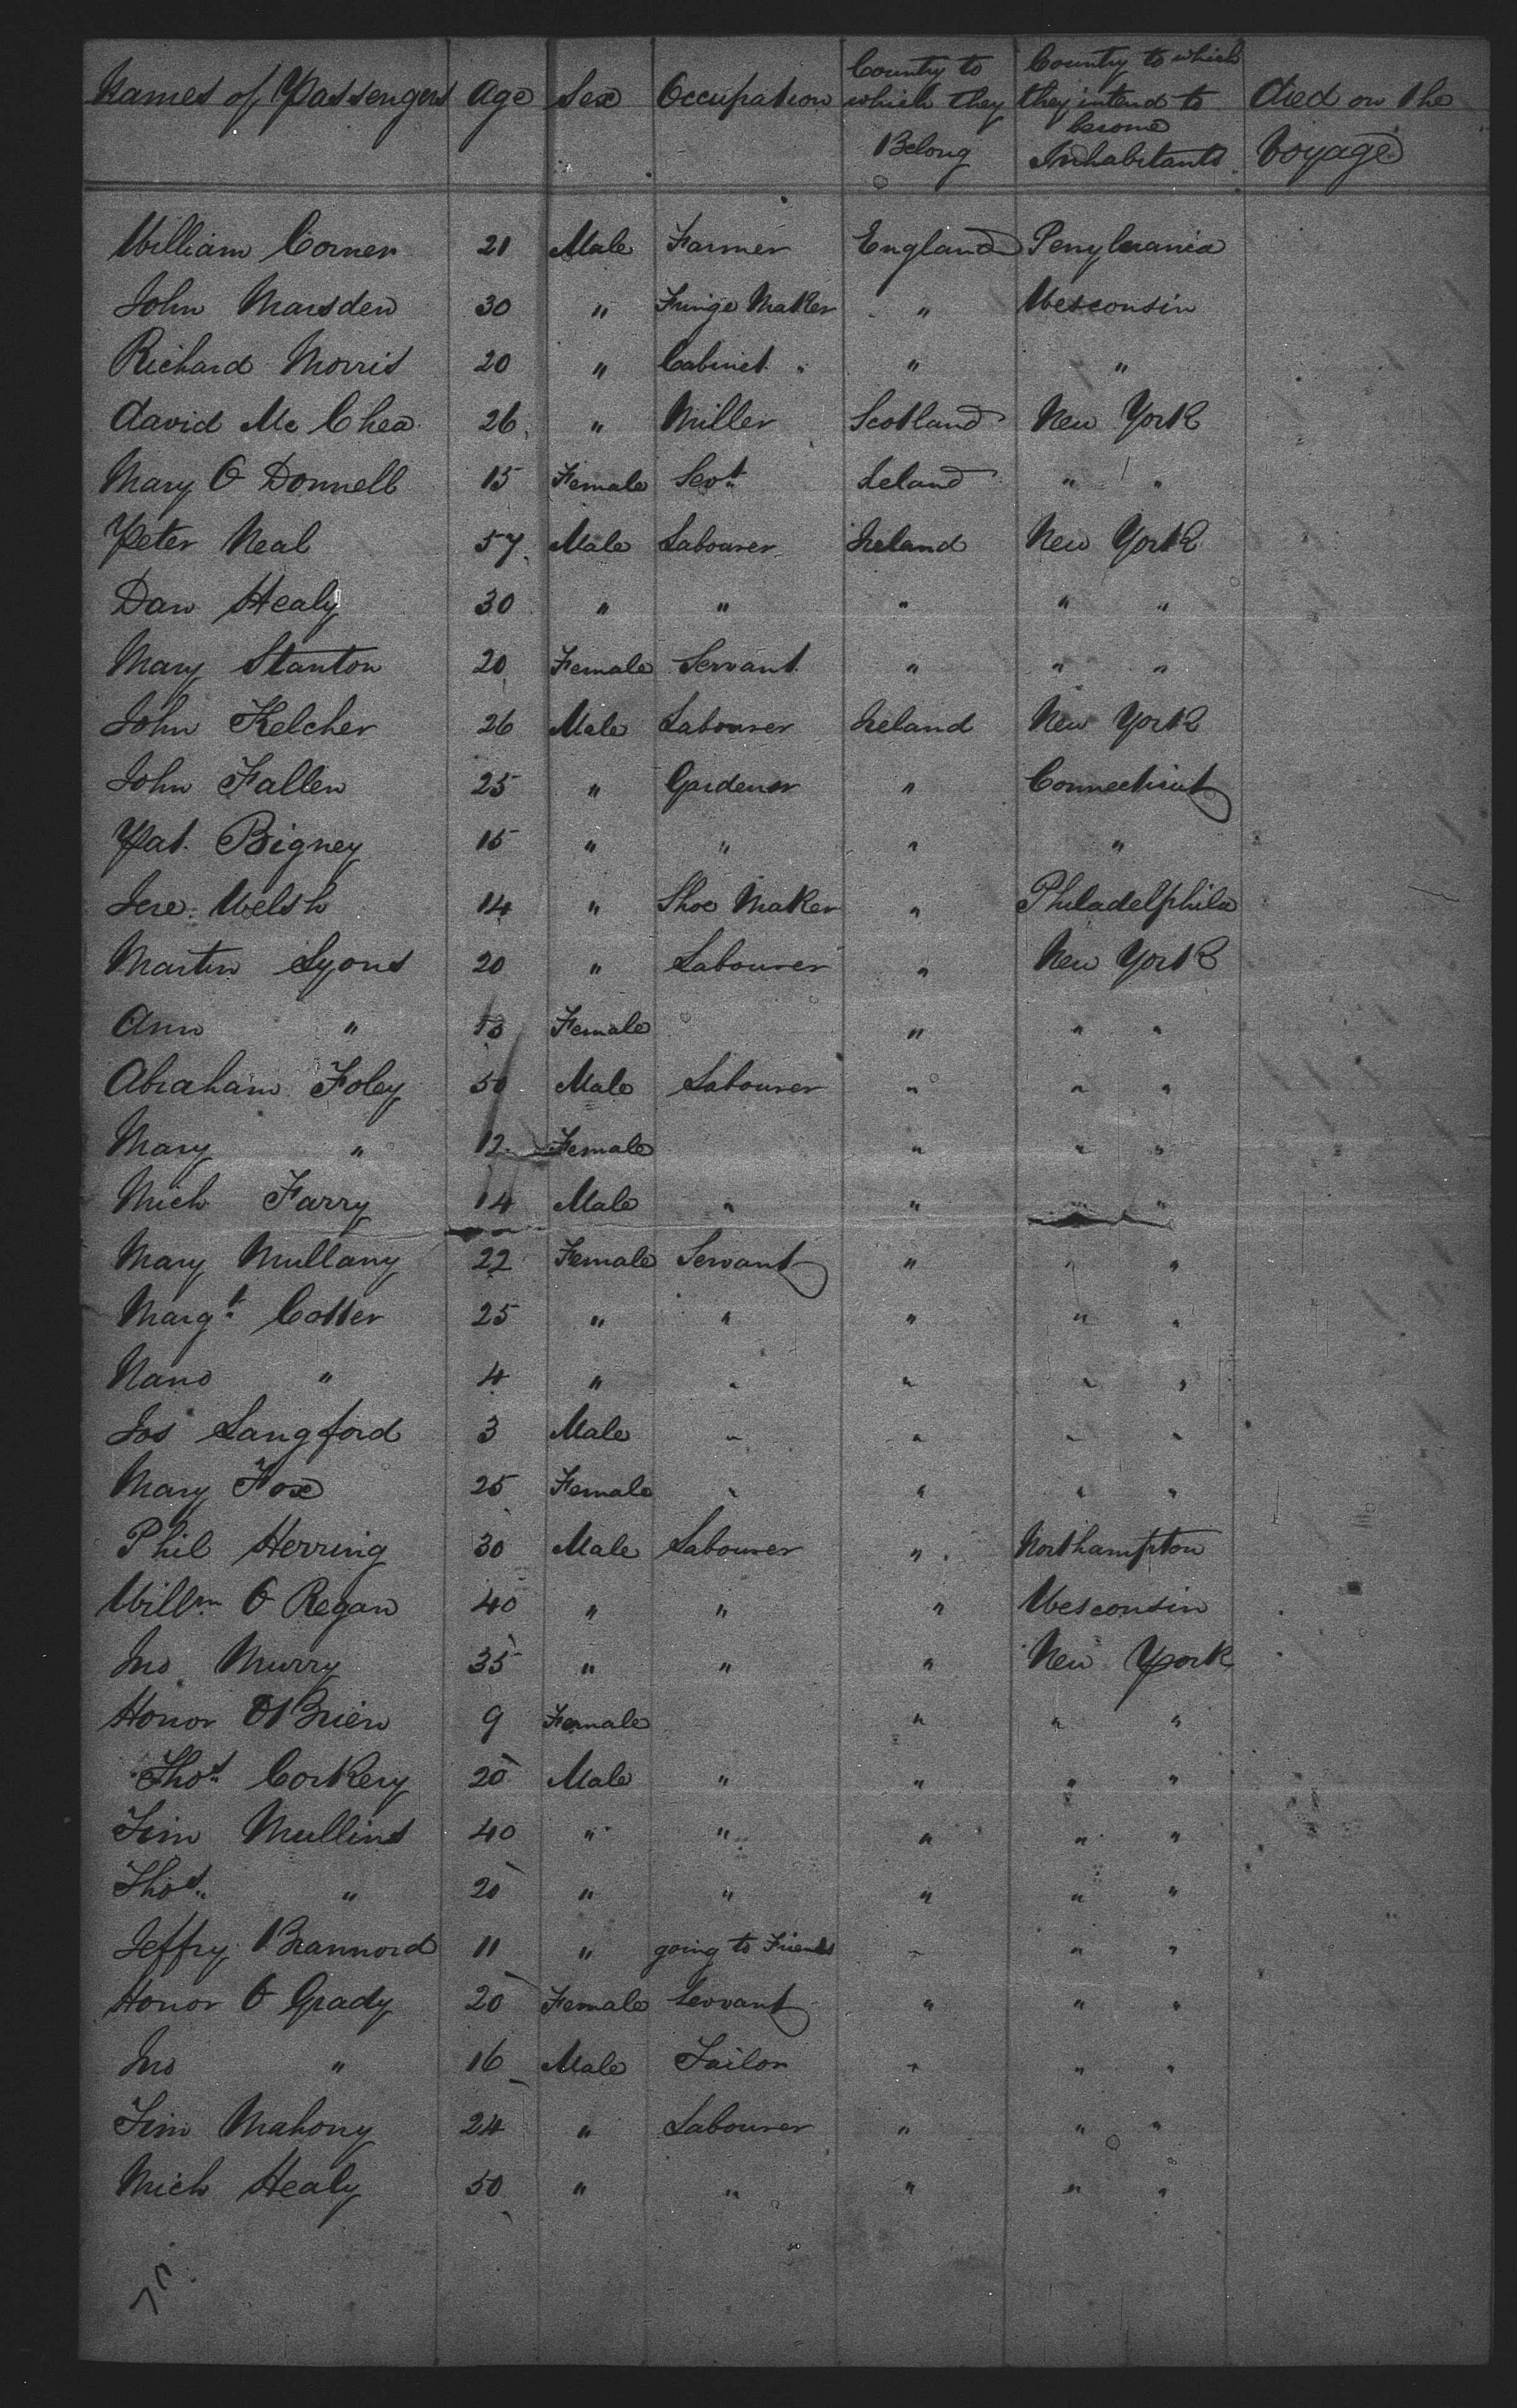 Names of Passengers Age Sex Occupation Country to which they Belong Country to which they intend to become Inhabitants Died on the Voyage
William Corner 21 Male Farmer England Penylvania
John Marsden 30 " Fringe Maker " Wesconsin
Richard Morris 20 " Cabinet " " "
David Mc Chea 26 " Miller Scotland New York
Mary O Donnell 15 Female Sevt Ireland " "
Peter Neal 57 Male Labourer Ireland New York
Dan Healy 30 " " " " "
Mary Stanton 20 Female Servant " " "
John Kelcher 26 Male Labourer Ireland New York
John Fallen 25 " Gardener " Connecticut
Pat. Bigney 15 " " " "
Jere Welsh 14 " Shoe Maker " Philadelphila
Martin Lyons 20 " Labourer " New York
Ann " 13 Female " " "
Abraham Foley 50 Male Labourer " " "
Mary " 12 Female " " "
Mich Farry 14 Male " " " "
Mary Mullany 22 Female Servant " " "
Margt Cotter 25 " " " " "
Nano " 4 " " " " "
Jos Langford 3 Male " " " "
Mary Fox 25 Female " " " "
Phil Herring 30 Male Labourer " Northampton
Willm O Regan 40 " " " Wesconsin
Jno Murry 35 " " " New York
Honor O'Brien 9 Female " " "
Thos Corkery 20 Male " " " "
Tim Mullins 40 " " " " "
Thos " 20 " " " " "
Jeffry Brannord 11 " going to Friends " " "
Honor O Grady 20 Female Servant " " "
Jno " 16 Male Tailor " " "
Tim Mahony 24 " Labourer " " "
Mich Healy 50 " " " " "